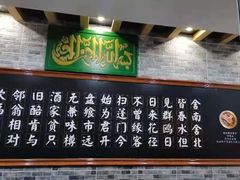 بسم الله الرحمن الرحيم
舍南舍北
皆春水但
見群鸥日
日来花径
不曾缘客
扫蓬门今
始为君开
盘飧市远
无兼味樽
酒家贫只
旧醅肯与
邻翁相对